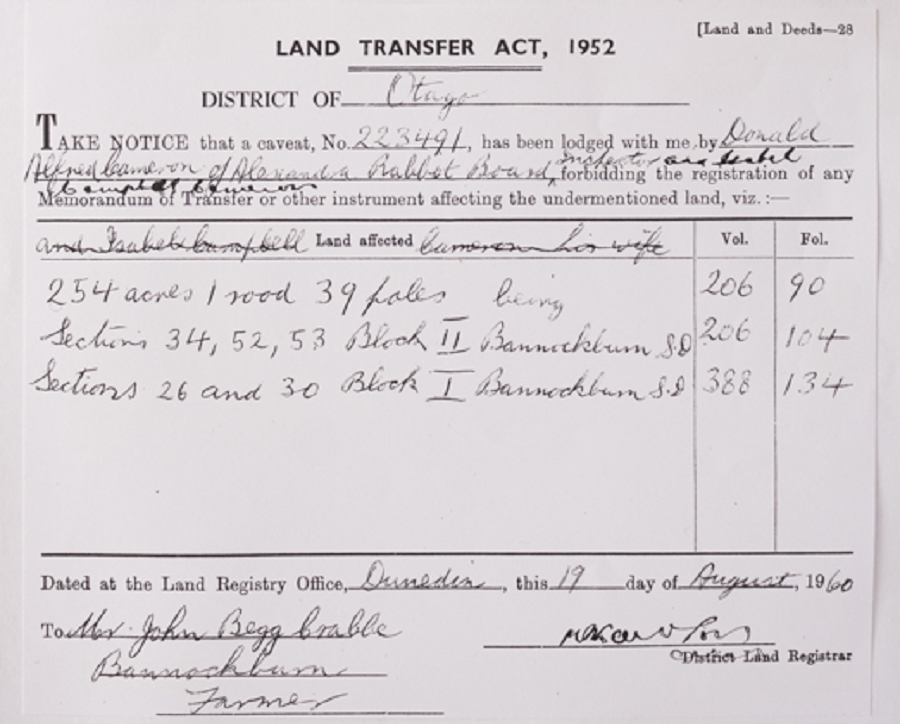 [Land and Deeds—28
LAND TRANSFER ACT, 1952
DISTRICT OF Otago
TAKE NOTICE that a caveat, No. 223491, has been lodged with me by Donald
Inspector and Isabel
Alfred Cameron of Alexandra Rabbit Board, forbidding the registration of any
Campbell Cameron
Memorandum of Transfer or other instrument affecting the undermentioned land, viz.:—
and Isabel Campbell Land affected Cameron his wife Vol. Fol.
254 acres 1 rood 39 poles being 206 90
Sections 34, 52, 53 Block II Bannockburn S.D 206 104
Sections 26 and 30 Block I Bannockburn S.D 388 134
Dated at the Land Registry Office, Dunedin, this 19 day of August, 1960
To Mr. John Begg Crabbe
District Land Registrar
Bannockburn
Farmer